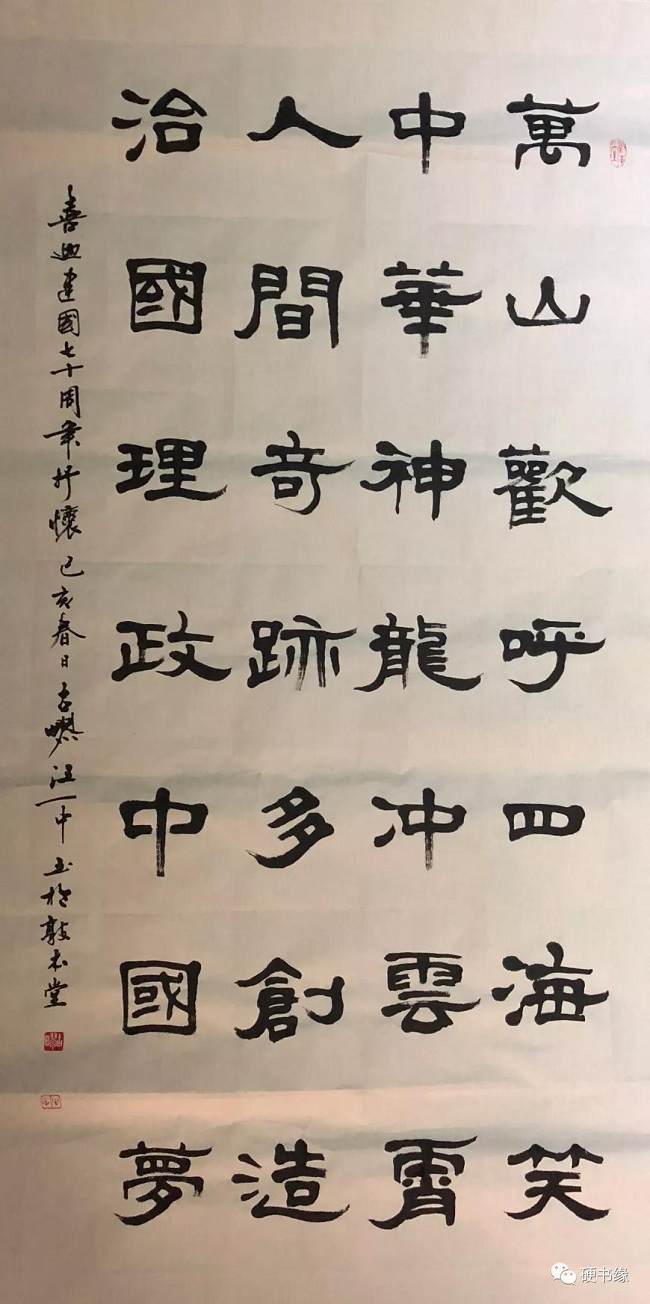 萬山歡呼四海笑
中華神龍冲雲霄
人間奇跡多創造
治國理政中國夢
喜迎建國七十周年抒懷己亥春日古 汪一中書於敦本堂
硬书缘